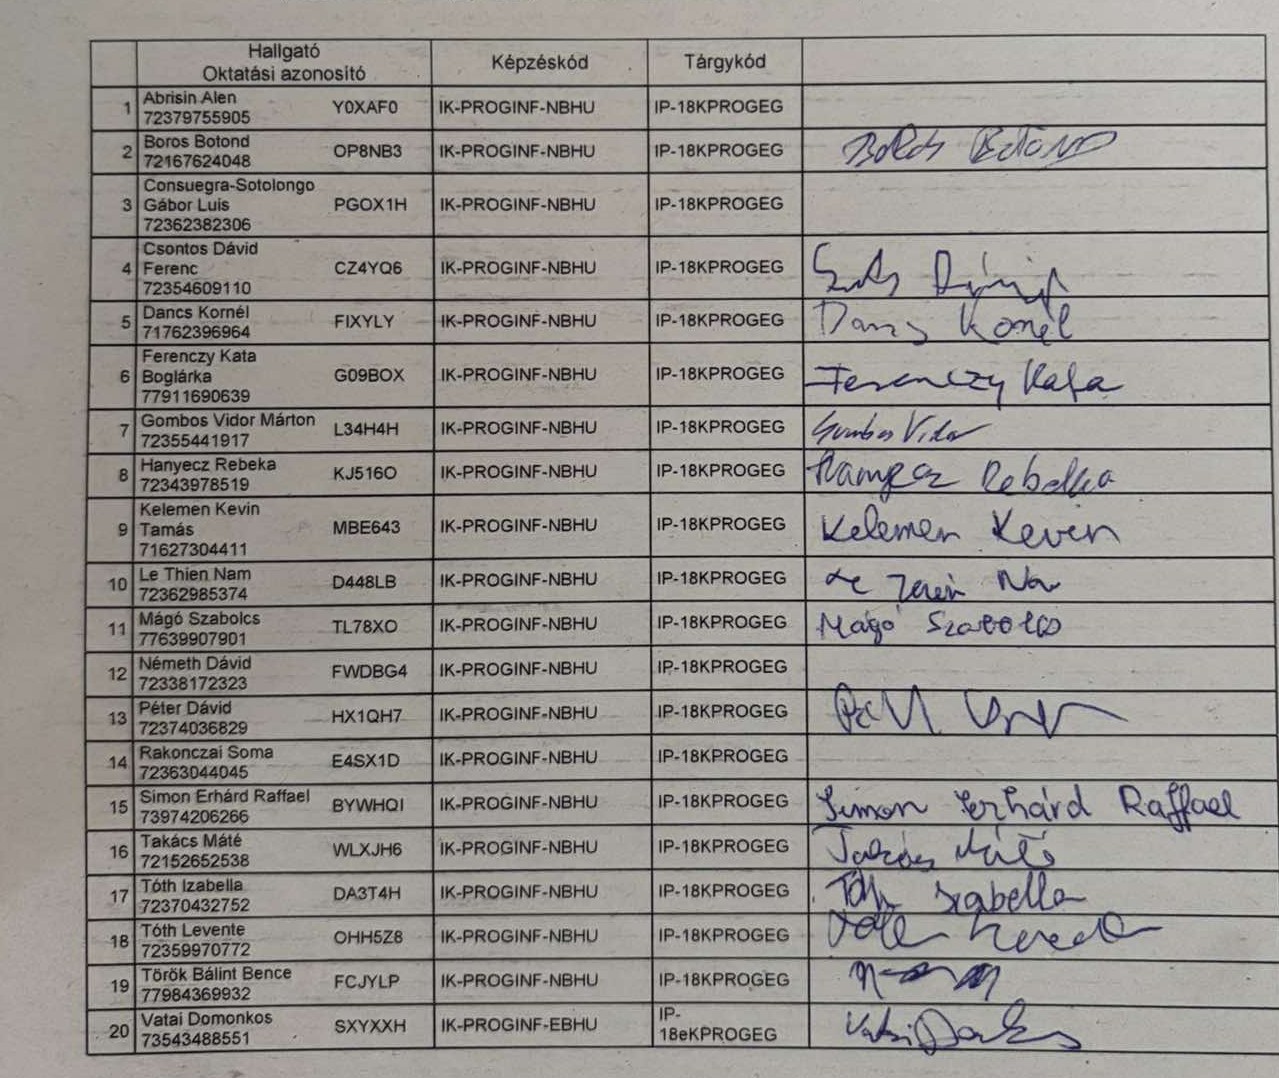 Hallgató
Oktatási azonosító Képzéskód Tárgykód
1 Abrisin Alen
72379755905 Y0XAF0 IK-PROGINF-NBHU IP-18KPROGEG
2 Boros Botond
72167624048 OP8NB3 IK-PROGINF-NBHU IP-18KPROGEG Boros Botond
3 Consuegra-Sotolongo
Gábor Luis
72362382306 PGOX1H IK-PROGINF-NBHU IP-18KPROGEG
4 Csontos Dávid
Ferenc
72354609110 CZ4YQ6 IK-PROGINF-NBHU IP-18KPROGEG
5 Dancs Kornél
71762396964 FIXYLY IK-PROGINF-NBHU IP-18KPROGEG Dancs Kornél
6 Ferenczy Kata
Boglárka
77911690639 G09BOX IK-PROGINF-NBHU IP-18KPROGEG Ferenczy Kata
7 Gombos Vidor Márton
72355441917 L34H4H IK-PROGINF-NBHU IP-18KPROGEG Gombos Vidor
8 Hanyecz Rebeka
72343978519 KJ516O IK-PROGINF-NBHU IP-18KPROGEG Hanyecz Rebeka
9 Kelemen Kevin
Tamás
71627304411 MBE643 IK-PROGINF-NBHU IP-18KPROGEG Kelemen Kevin
10 Le Thien Nam
72362985374 D448LB IK-PROGINF-NBHU IP-18KPROGEG Le Thien Nam
11 Mágó Szabolcs
77639907901 TL78XO IK-PROGINF-NBHU IP-18KPROGEG Mágó Szabolcs
12 Németh Dávid
72338172323 FWDBG4 IK-PROGINF-NBHU IP-18KPROGEG
13 Péter Dávid
72374036829 HX1QH7 IK-PROGINF-NBHU IP-18KPROGEG
14 Rakonczai Soma
72363044045 E4SX1D IK-PROGINF-NBHU IP-18KPROGEG
15 Simon Erhárd Raffael
73974206266 BYWHQI IK-PROGINF-NBHU IP-18KPROGEG Simon Erhárd Raffael
16 Takács Máté
72152652538 WLXJH6 IK-PROGINF-NBHU IP-18KPROGEG Takács Máté
17 Tóth Izabella
72370432752 DA3T4H IK-PROGINF-NBHU IP-18KPROGEG Tóth Izabella
18 Tóth Levente
72359970772 OHH5Z8 IK-PROGINF-NBHU IP-18KPROGEG Tóth Levente
19 Török Bálint Bence
77984369932 FCJYLP IK-PROGINF-NBHU IP-18KPROGEG
20 Vatai Domonkos
73543488551 SXYXXH IK-PROGINF-EBHU IP-
18eKPROGEG Vatai